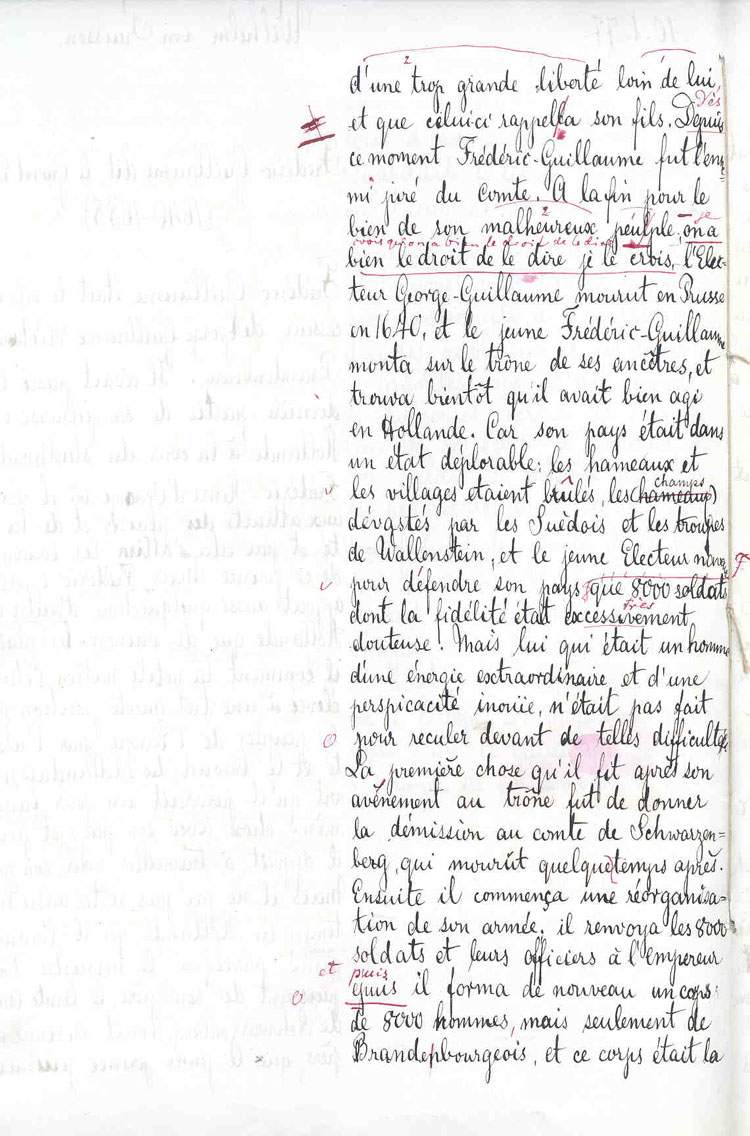 2
d'une trop grande liberté loin de lui,
Dès
et que celuici rappella son fils. Depuis
ce moment Frédéric-Guillaume fut l'enne=
mi juré du comte. A la fin pour le
2 je
bien de son malheureux peulple, on a
crois qu'on a bien le droit de le dire
bien le droit de le dire je le crois, l'Elec=
teur George-Guillaume mourut en Prusse
en 1640, et le jeune Frédéric-Guillaume
monta sur le trône de ses ancêtres, et
trouva bientôt qu'il avait bien agi
en Hollande. Car son pays était dans
un état déplorable: les hameaux et
champs
v les villages étaient brûlés, les (hameaux)
dévastés par les Suèdois et les troupes
de Wallenstein, et le jeune Electeur n'avait
v pour défendre son pays que 8000 soldats
très
dont la fidélité était excessivement
douteuse. Mais lui qui était un homme
d'une énergie extraordinaire et d'une
perspicacité inouïe, n'était pas fait
o pour reculer devant de telles difficultés.
La première chose qu'il fit après son
avénement au trône fut de donner
la démission au comte de Schwarzen=
berg, qui mourût quelque temps après.
Ensuite il commença une réorganisa=
tion de son armée. il renvoya les 8000
soldats et leurs officiers à l'empereur
et puis
o puis il forma de nouveau un corps
de 8000 hommes, mais seulement de
Brandenbourgeois, et ce corps était la